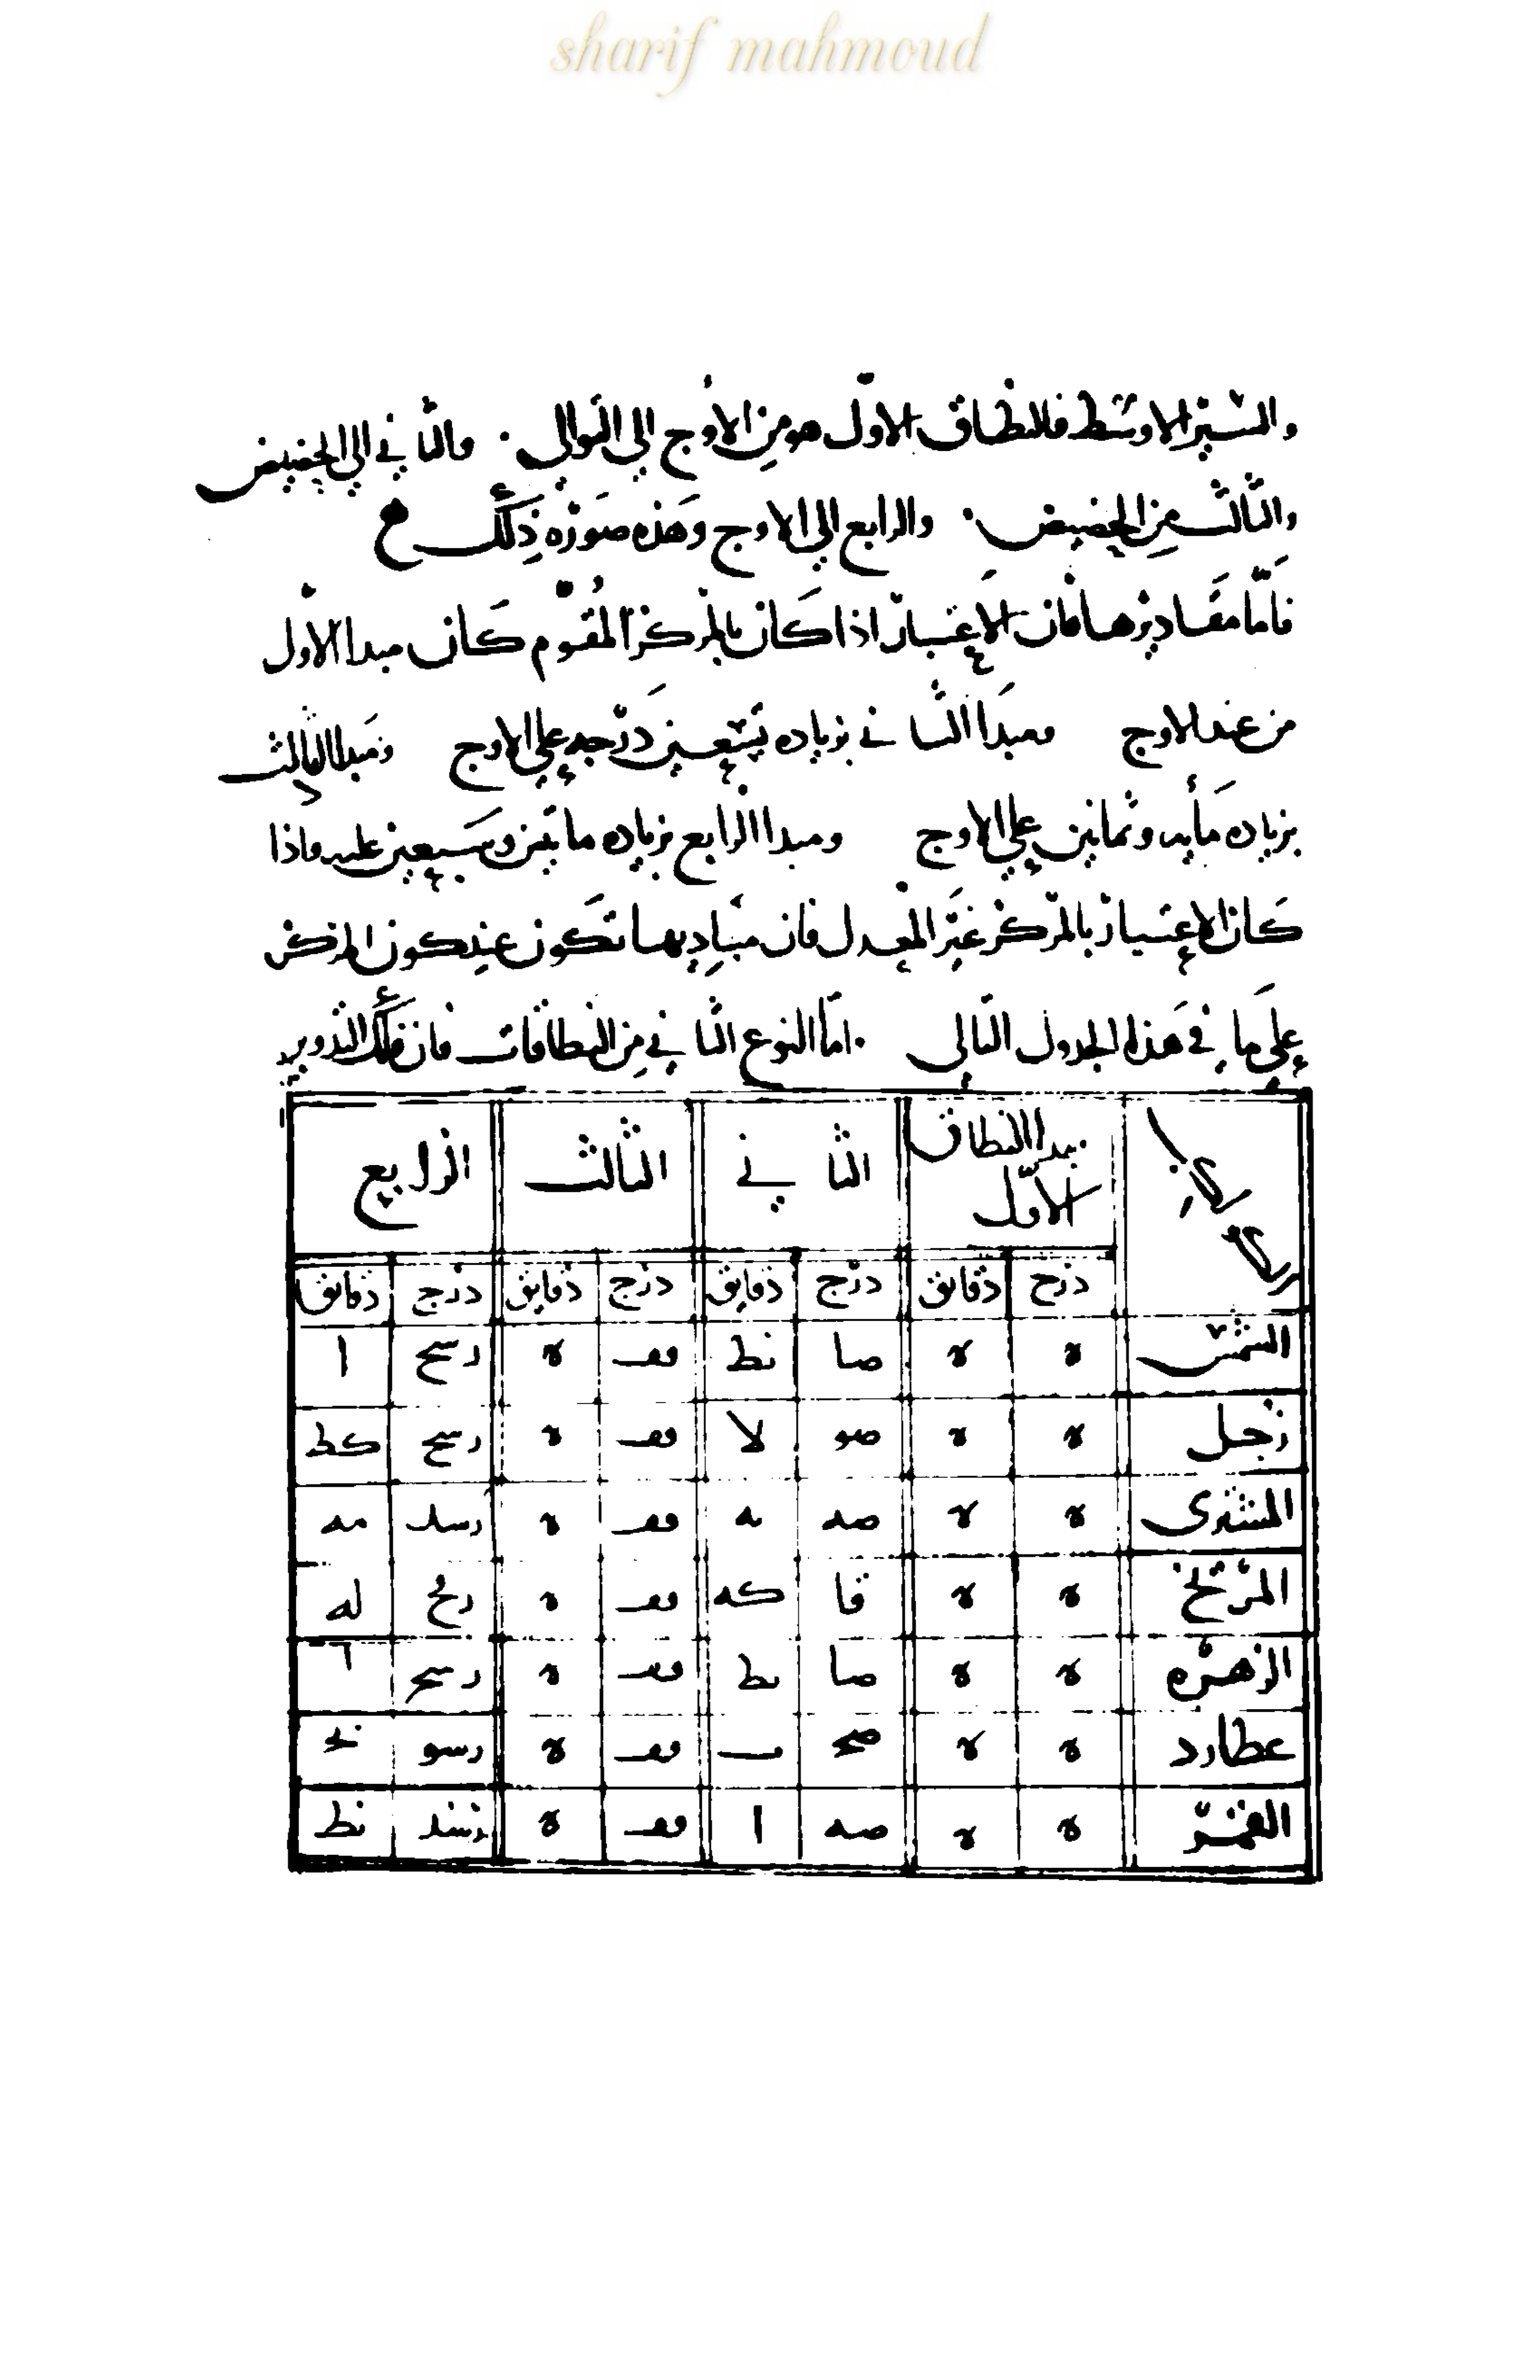 sharif mahmoud
والسير الاوسط فالنطاق الاول هو من الاوج الى التوالي . والثاني الى الحضيض
والثالث من الحضيض . والرابع الى الاوج وهذه صورة ذلك
فاما مقاديرها فان الاعتبار اذا كان بالمركز المقوم كان مبدا الاول
من عند الاوج ومبدا الثاني بزياده تسعين درجه على الاوج ومبدا الثالث
بزياده مأيه وثمانين على الاوج ومبدا الرابع بزياده مايتين وسبعين عليه واذا
كان الاعتبار بالمركز غير المعدل فان مباديها تكون عند كون المركز
على ما في هذه الجدول التالي . اما النوع الثاني من النطاقات فان فلك التدوير
الكواكب | مبدا النطاق الاول | الثاني | الثالث | الرابع
درج دقايق درج دقايق درج دقايق درج دقايق
الشمس ه ه صا نط قف ه رسح ا
زحل ه ه صو لا قف ه رسح كط
المشترى ه ه صه ه قف ه رسد مه
المريخ ه ه قا كه قف ه رنح له
الزهره ه ه صا نط قف ه رسح
عطارد ه ه صح قف ه رسو
القمر ه ه صه ا قف ه رسد نط